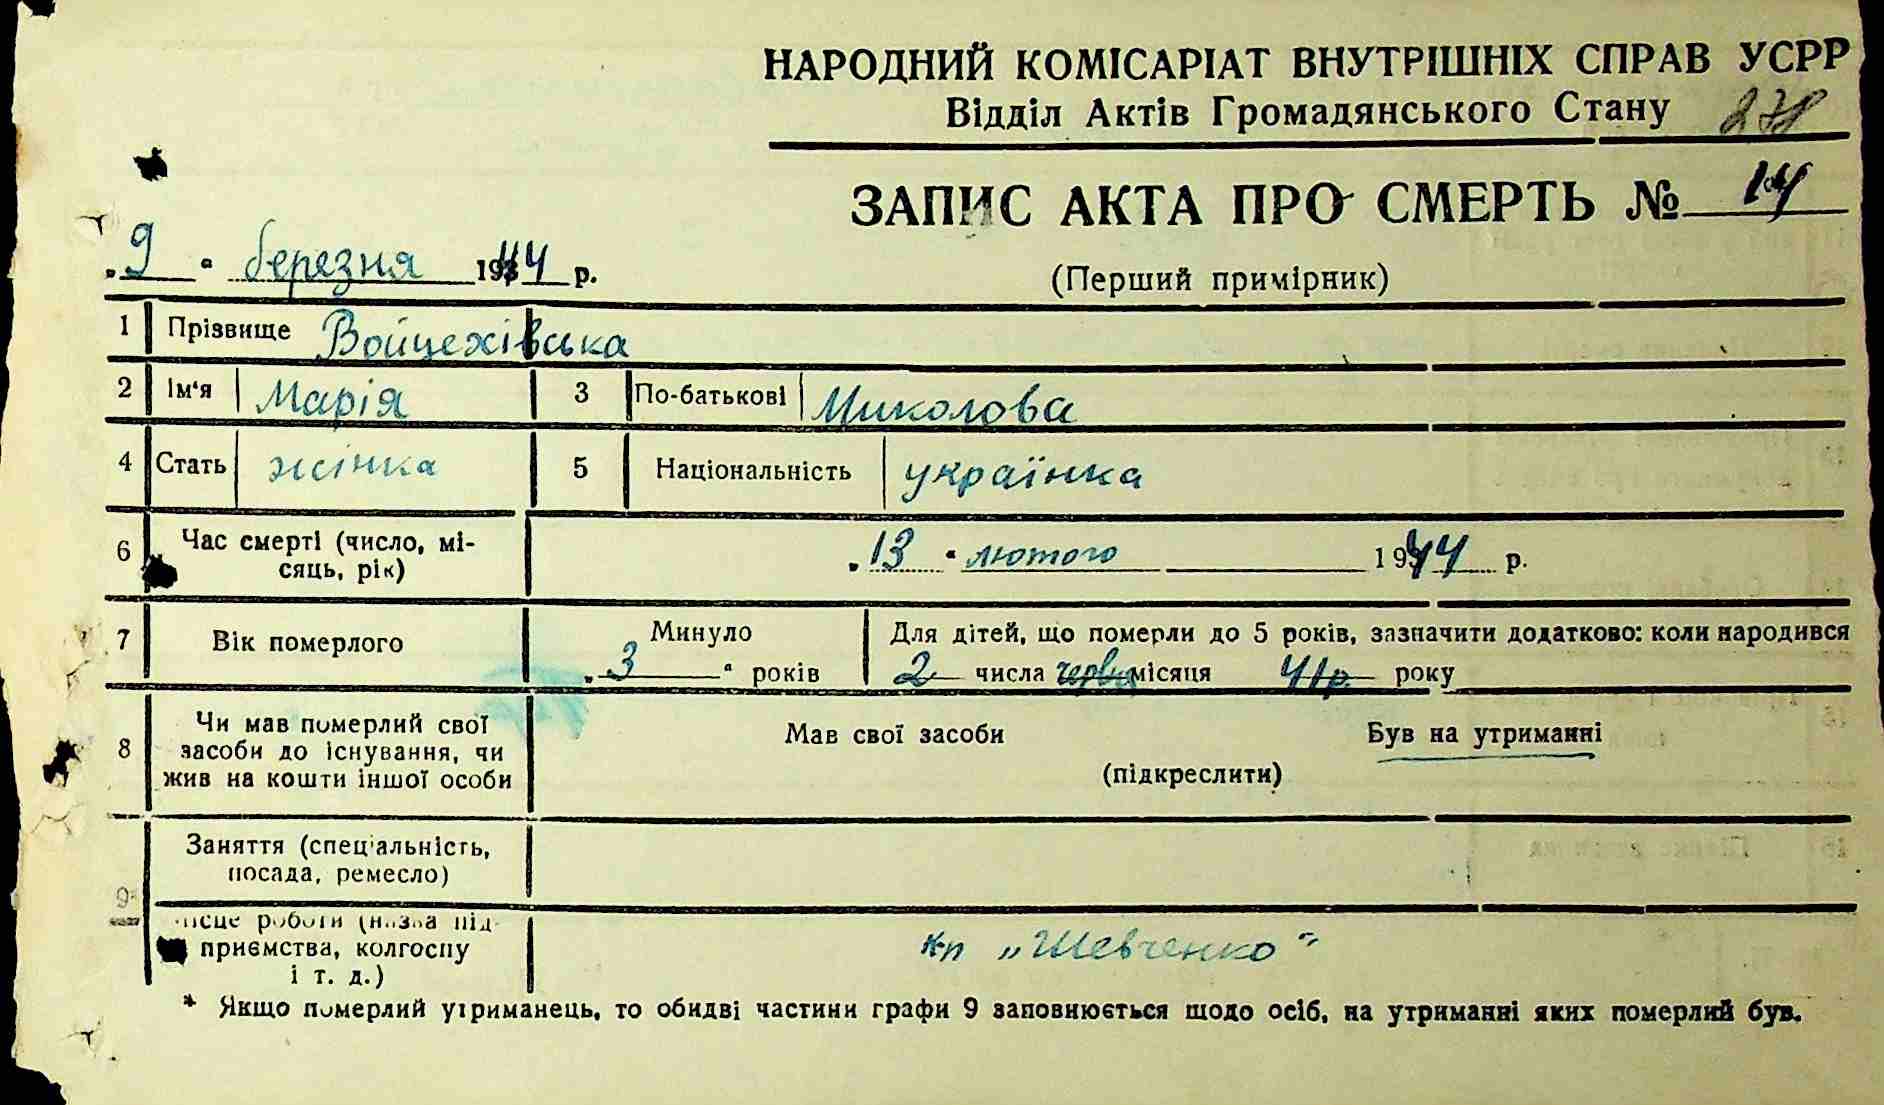 НАРОДНИЙ КОМІСАРІАТ ВНУТРІШНІХ СПРАВ УСРР
Відділ Актів Громадянського Стану
ЗАПИС АКТА ПРО СМЕРТЬ № 14
„ 9 “ березня 1944 р.
(Перший примірник)
1 Прізвище Войцехівська
2 Ім'я Марія 3 По-батькові Миколова
4 Стать жінка 5 Національність українка
6 Час смерті (число, мі-
сяць, рік) „ 13 “ лютого 1944 р.
7 Вік померлого Минуло Для дітей, що померли до 5 років, зазначити додатково: коли народився
„ 3 “ років 2 числа червня місяця 41р. року
8 Чи мав померлий свої
засоби до існування, чи
жив на кошти іншої особи
Мав свої засоби Був на утриманні
(підкреслити)
9 Заняття (спеціальність,
посада, ремесло)
місце роботи (назва під-
приємства, колгоспу
і т. д.)
кп „Шевченко“
* Якщо померлий утриманець, то обидві частини графи 9 заповнюється щодо осіб, на утриманні яких померлий був.